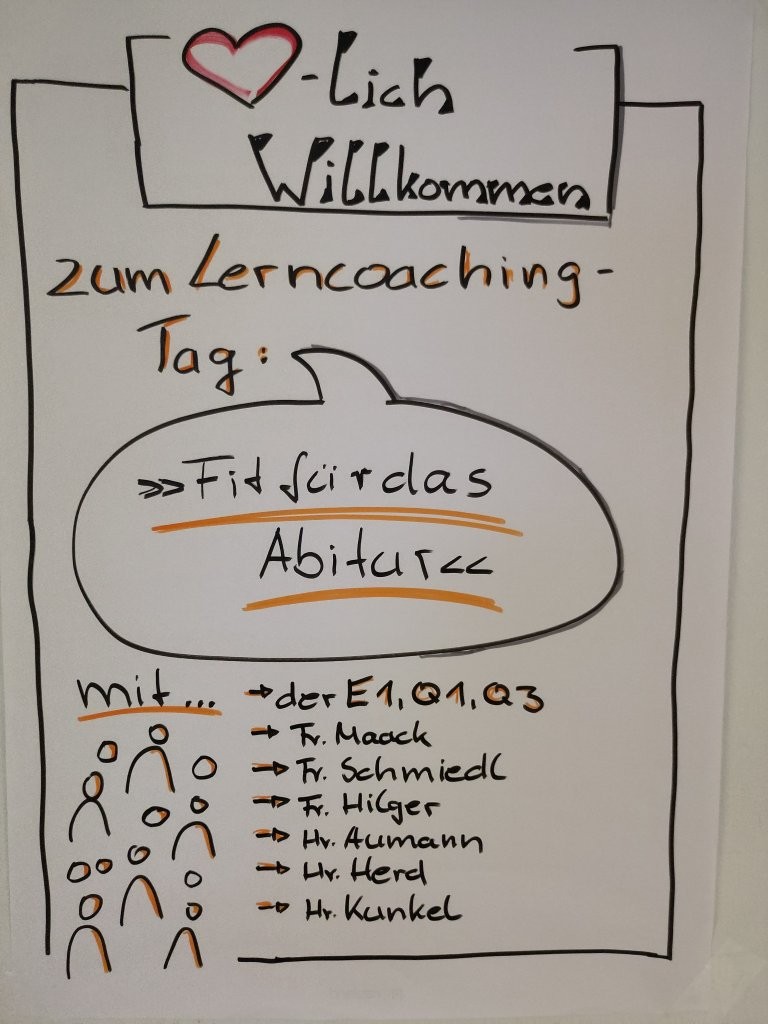 -lich
Willkommen
zum Lerncoaching-
Tag:
>>Fit für das
Abitur<<
mit... → der E1, Q1, Q3
→ Fr. Maack
→ Fr. Schmiedl
→ Fr. Hilger
→ Hr. Aumann
→ Hr. Herd
→ Hr. Kunkel